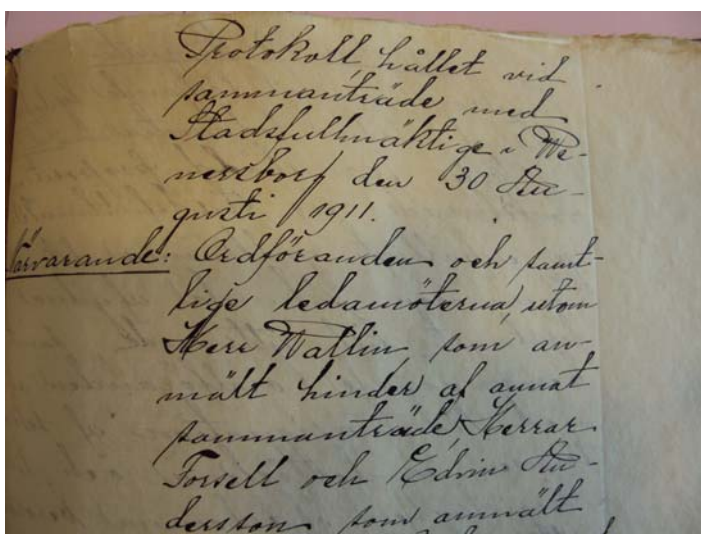 Protokoll, hållet vid
sammanträde med
Stadsfullmäktige i We-
nersborg den 30 Au-
gusti 1911.
Närvarande: Ordföranden och samt-
lige ledamöterna, utom
Herr Wallin, som an-
mält hinder af annat
sammanträde, Herrar
Forsell och Edvin An-
dersson som anmält